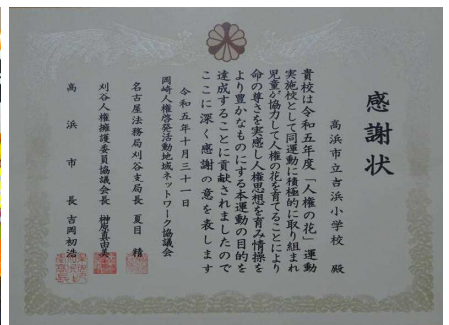 感謝状
高浜市立吉浜小学校 殿
貴校は令和五年度「人権の花」運動
実施校として同運動に積極的に取り組まれ
児童が協力して人権の花を育てることにより
命の尊さを実感し人権思想を育み情操を
より豊かなものにする本運動の目的を
達成することに貢献されましたので
ここに深く感謝の意を表します
令和五年十月三十一日
岡崎人権啓発活動地域ネットワーク協議会
名古屋法務局刈谷支局長 夏目 精
刈谷人権擁護委員協議会長 榊原真由美
高浜市長 吉岡初浩